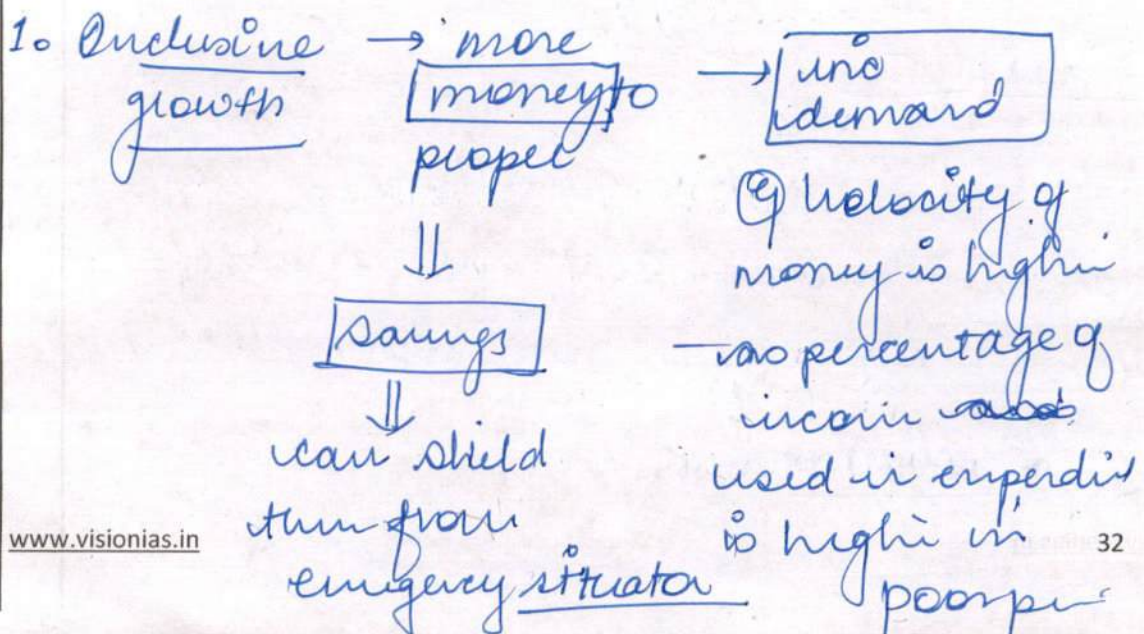 1. Inclusive growth → more money to people → inc demand
⇓
Savings
⇓
can shield
them from
emergency situation
velocity of
money is higher
as percentage of
income
used in
is higher in
www.visionias.in
32